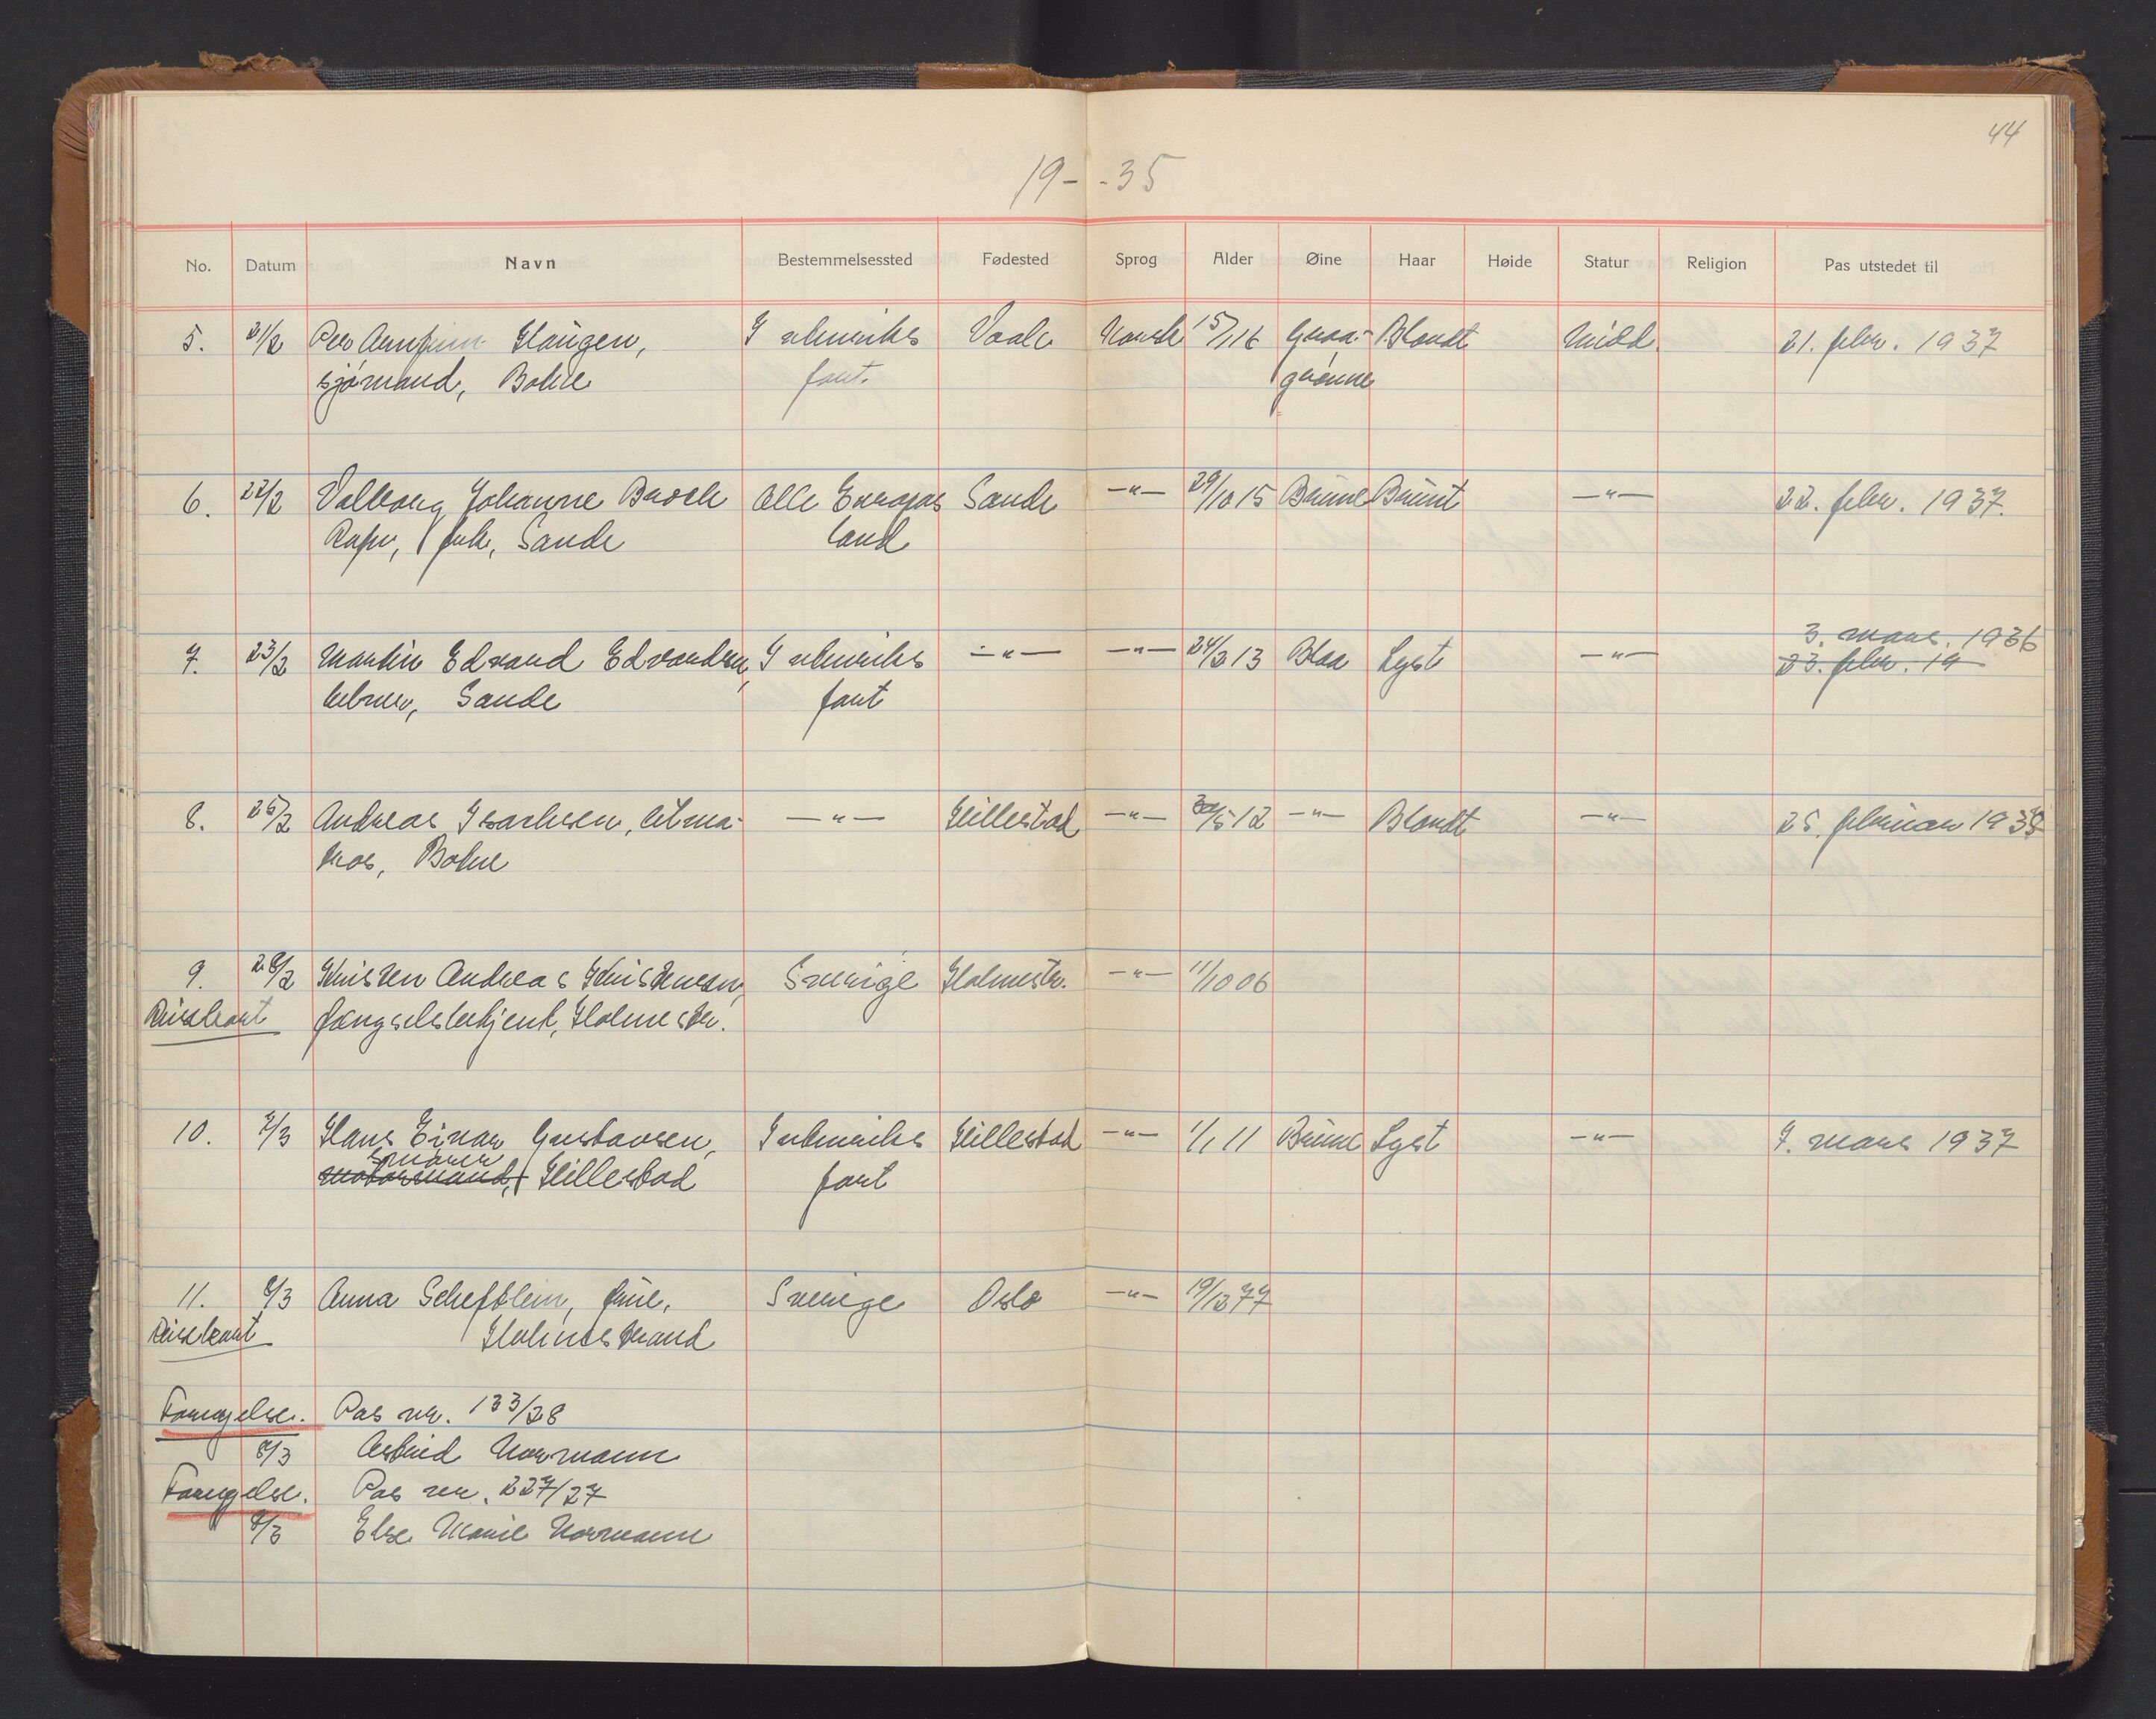 44
19 - - 35
No. Datum Navn Bestemmelsessted Fødested Sprog Alder Øine Haar Høide Statur Religion Pas utstedet til
5. 21/2 Per Arnfinn Haugen, I utenriks Vaale Norsk 15/1 16 Graa- Blondt Midd. 21. febr. 1937
sjømand, Botne fart. grønne
6. 22/2 Valborg Johanne Broch Alle Europas Sande —"— 29/10 15 Brune Brunt —"— 22. febr. 1937.
frk, Sande land
7. 23/2 Martin Edvard Edvardsen, I utenriks —"— —"— 24/2 13 Blaa Lyst —"— 3. mars. 1936
23. febr. 19
Sande fart
8. 25/2 Andreas Isachsen, letma- —"— Hillestad —"— 30/5 12 —"— Blondt —"— 25. februar 1935
tros, Botne
9. 28/2 Kristen Andreas Kristensen, Sverige Holmestr. —"— 11/10 06
Reisekort fængselsbetjent, Holmestr.
10. 7/3 Hans Einar Gustavsen, I utenriks Hillestad —"— 1/1 11 Brune Lyst —"— 7. mars 1937
smører
motormand, Hillestad fart
11. 8/3 Anna Scheftlein, frue, Sverige Oslo —"— 19/12 77
Reisekort Holmestrand
Fornyelse. Pas nr. 133/28
8/3 Astrid Normann
Fornyelse. Pas nr. 227/27
8/3 Else Marie Normann